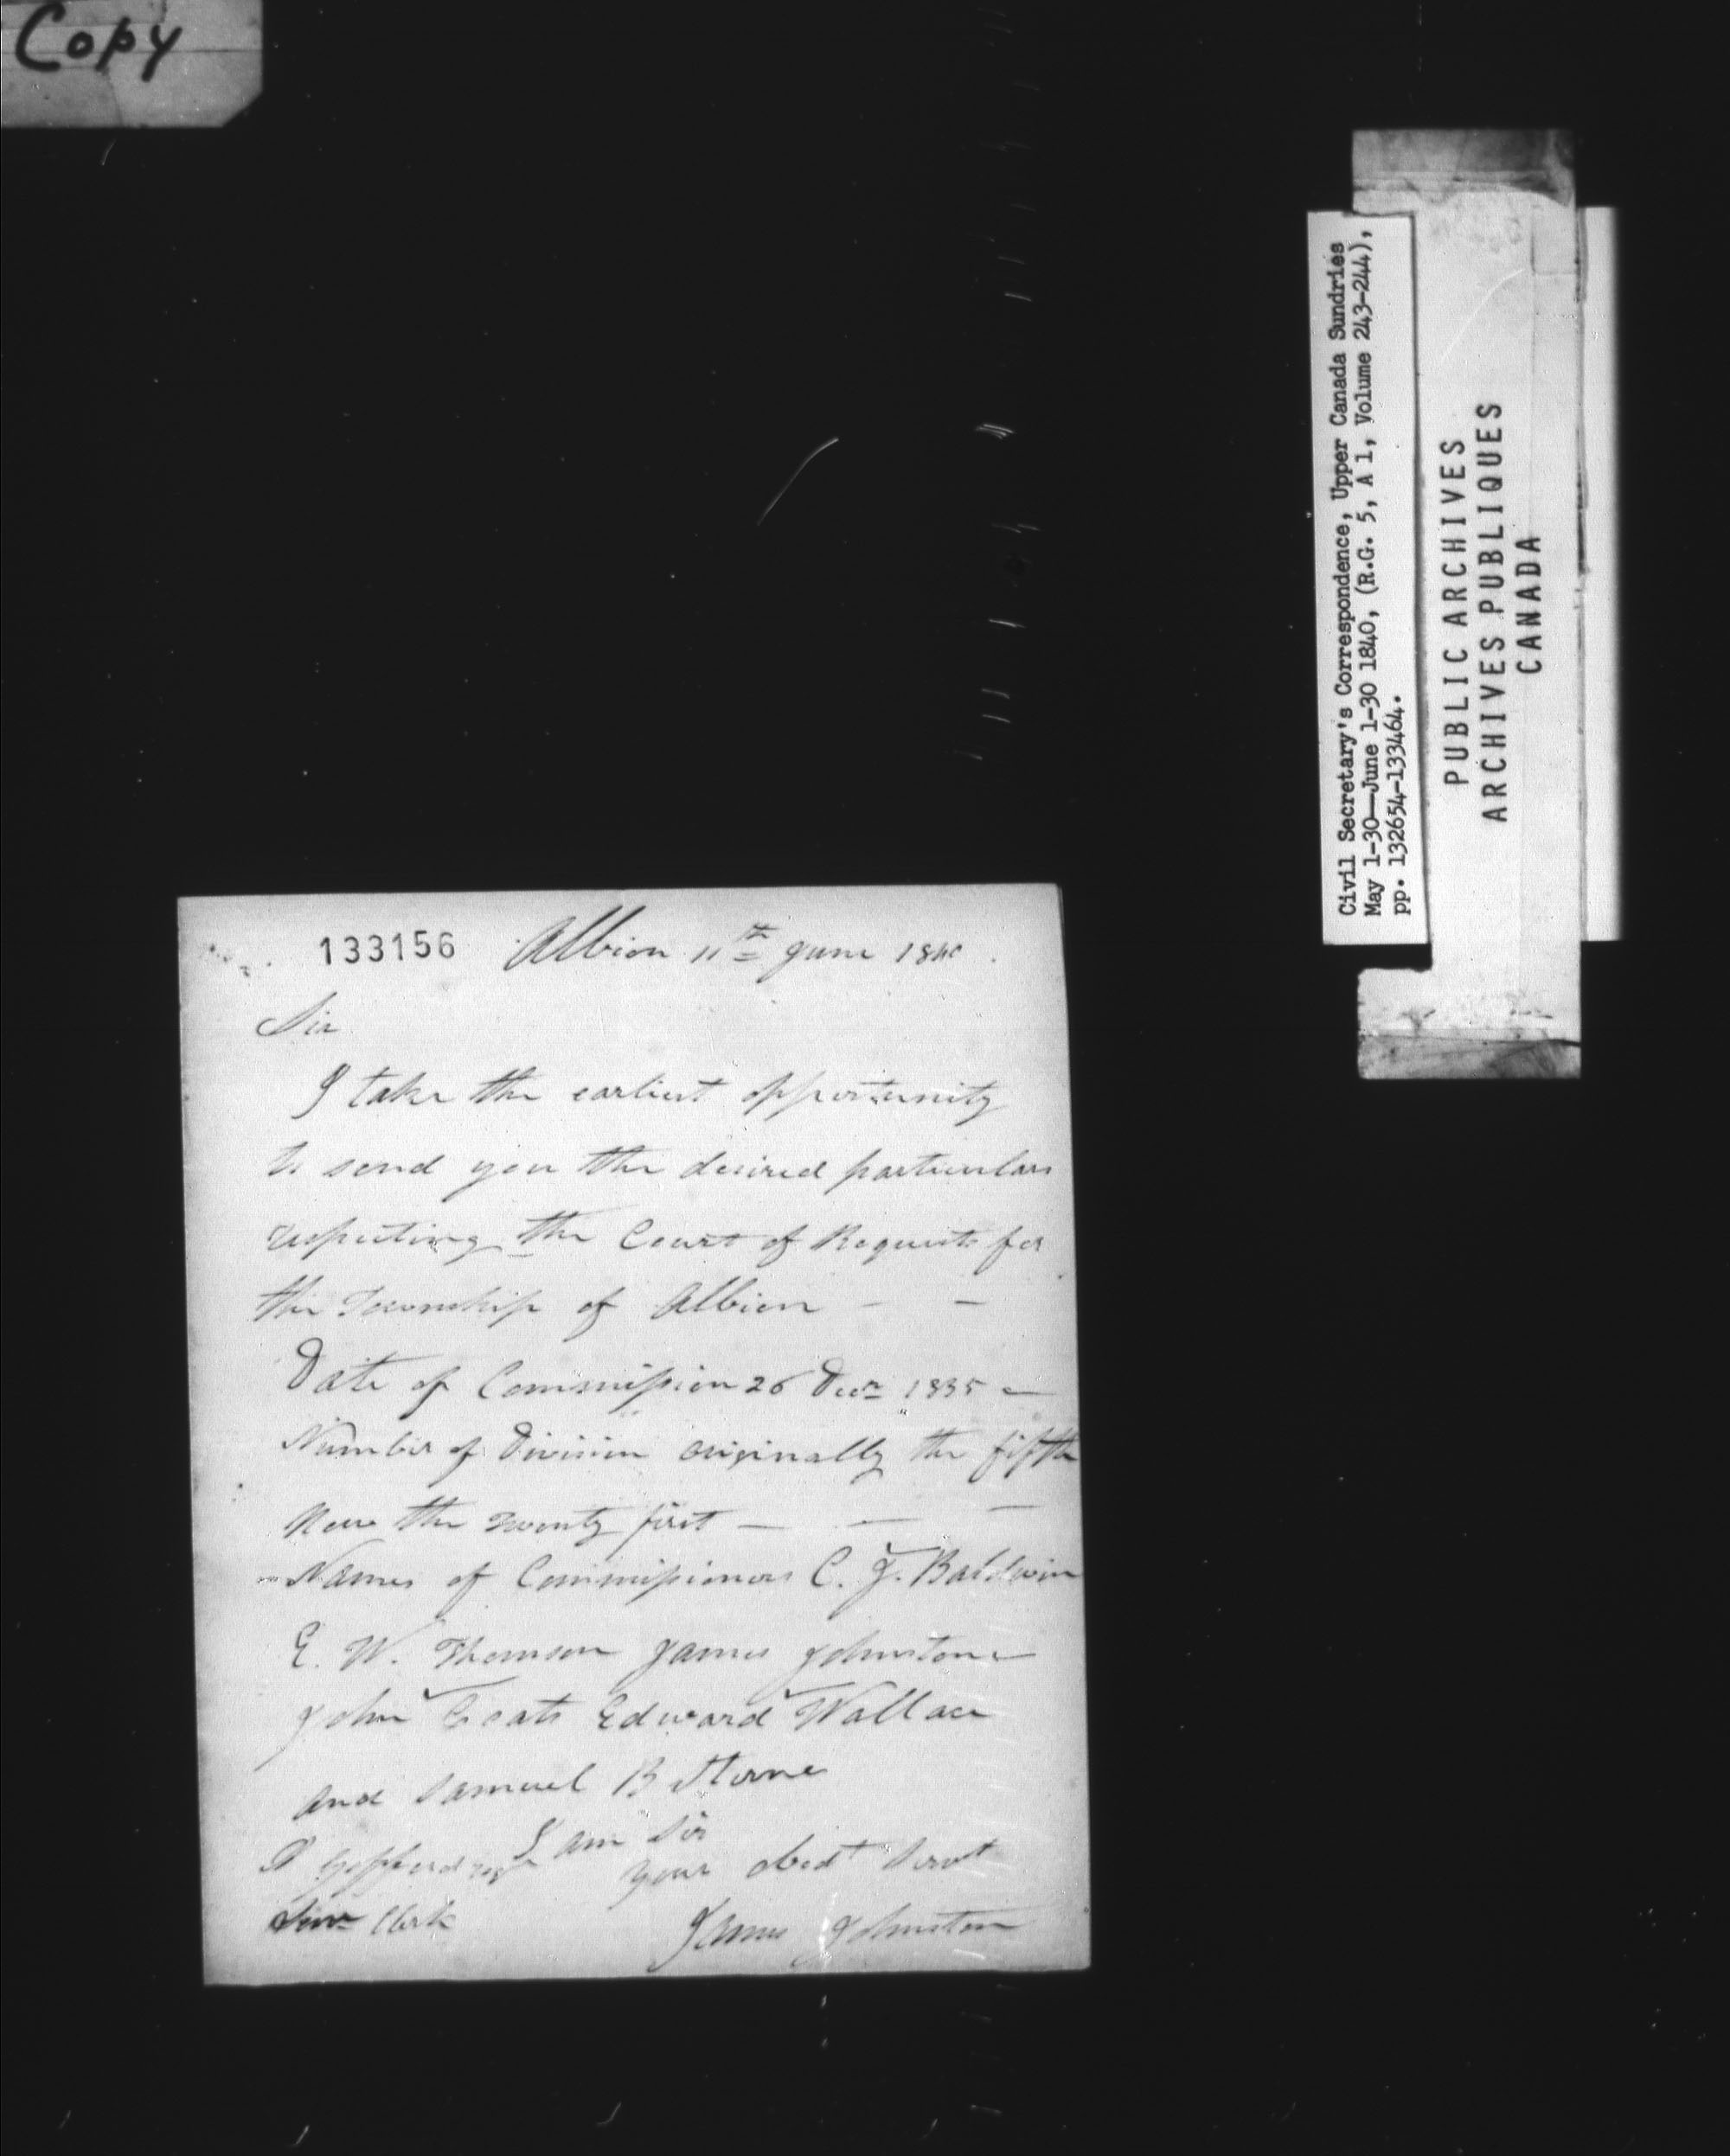 Copy
Civil Secretary's Correspondence, Upper Canada Sundries
May 1-30—June 1-30 1840, (R.G. 5, A 1, Volume 243-244),
pp. 132654-133464.
PUBLIC ARCHIVES
ARCHIVES PUBLIQUES
CANADA
133156 Albion 11th June 1840
Sir
I take the earliest opportunity
to send you the desired particulars
respecting the Court of Requests for
the Township of Albion - -
Date of Commission 26 Decr 1835 -
Number of Division originally the fifth
Now the Twenty first — — —
Names of Commissioners C. J. Baldwin
E. W. Thomson James Johnston
John Coats Edward Wallace
and Samuel B Sterne
I am Sir
your obedt Servt
Clerk
James Johnston